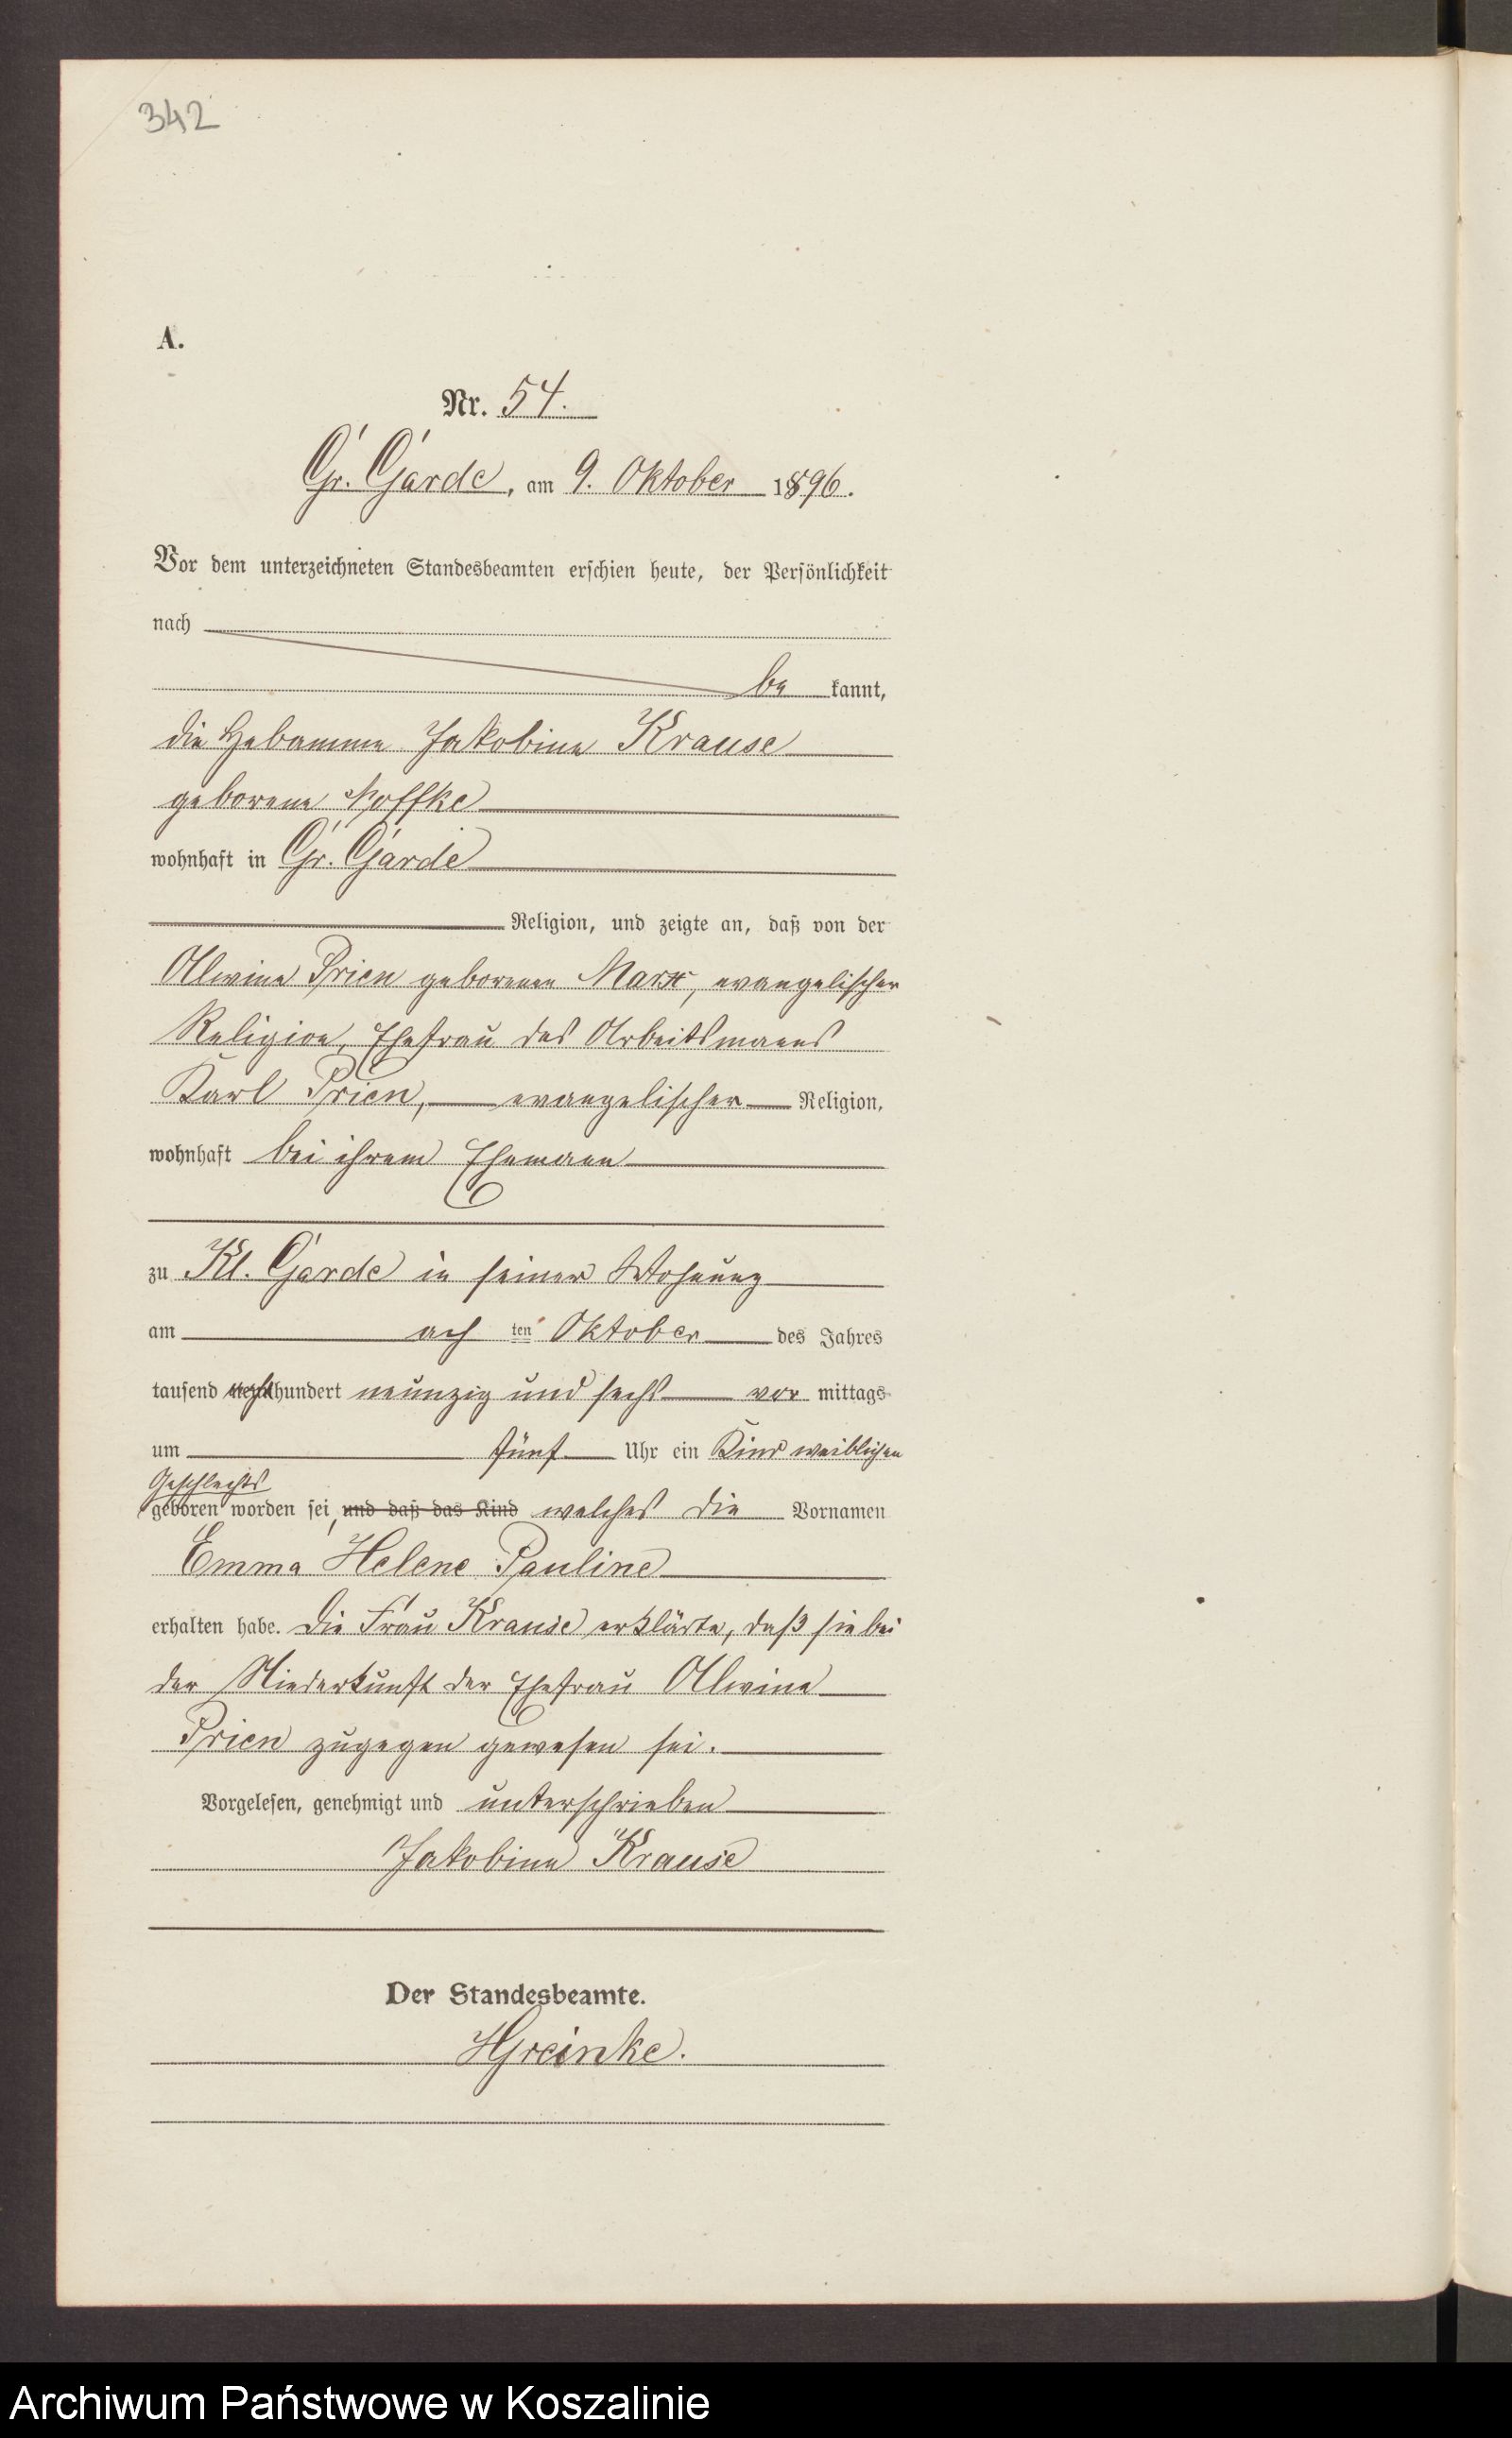 342
A.
Nr. 54.
Gr. Garde, am 9. Oktober 1896.
Vor dem unterzeichneten Standesbeamten erschien heute, der Persönlichkeit
nach
be kannt,
die Hebamme Jakobine Krause
geborene Noffke
wohnhaft in Gr. Garde
Religion, und zeigte an, daß von der
Alwine Prien geborenen Marx, evangelischer
Religion, Ehefrau des Arbeitsmanns
Karl Prien, evangelischer Religion,
wohnhaft bei ihrem Ehemann
zu Kl. Garde in seiner Wohnung
am ach ten Oktober des Jahres
tausend achthundert neunzig und sechs vor mittags
um fünf Uhr ein Kind weiblichen
Geschlechts
geboren worden sei, und daß das Kind welches die Vornamen
Emma Helene Pauline
erhalten habe. Die Frau Krause erklärte, daß sie bei
der Niederkunft der Ehefrau Alwine
Prien zugegen gewesen sei.
Vorgelesen, genehmigt und unterschrieben
Jakobine Krause
Der Standesbeamte.
HGreinke.
Archiwum Państwowe w Koszalinie